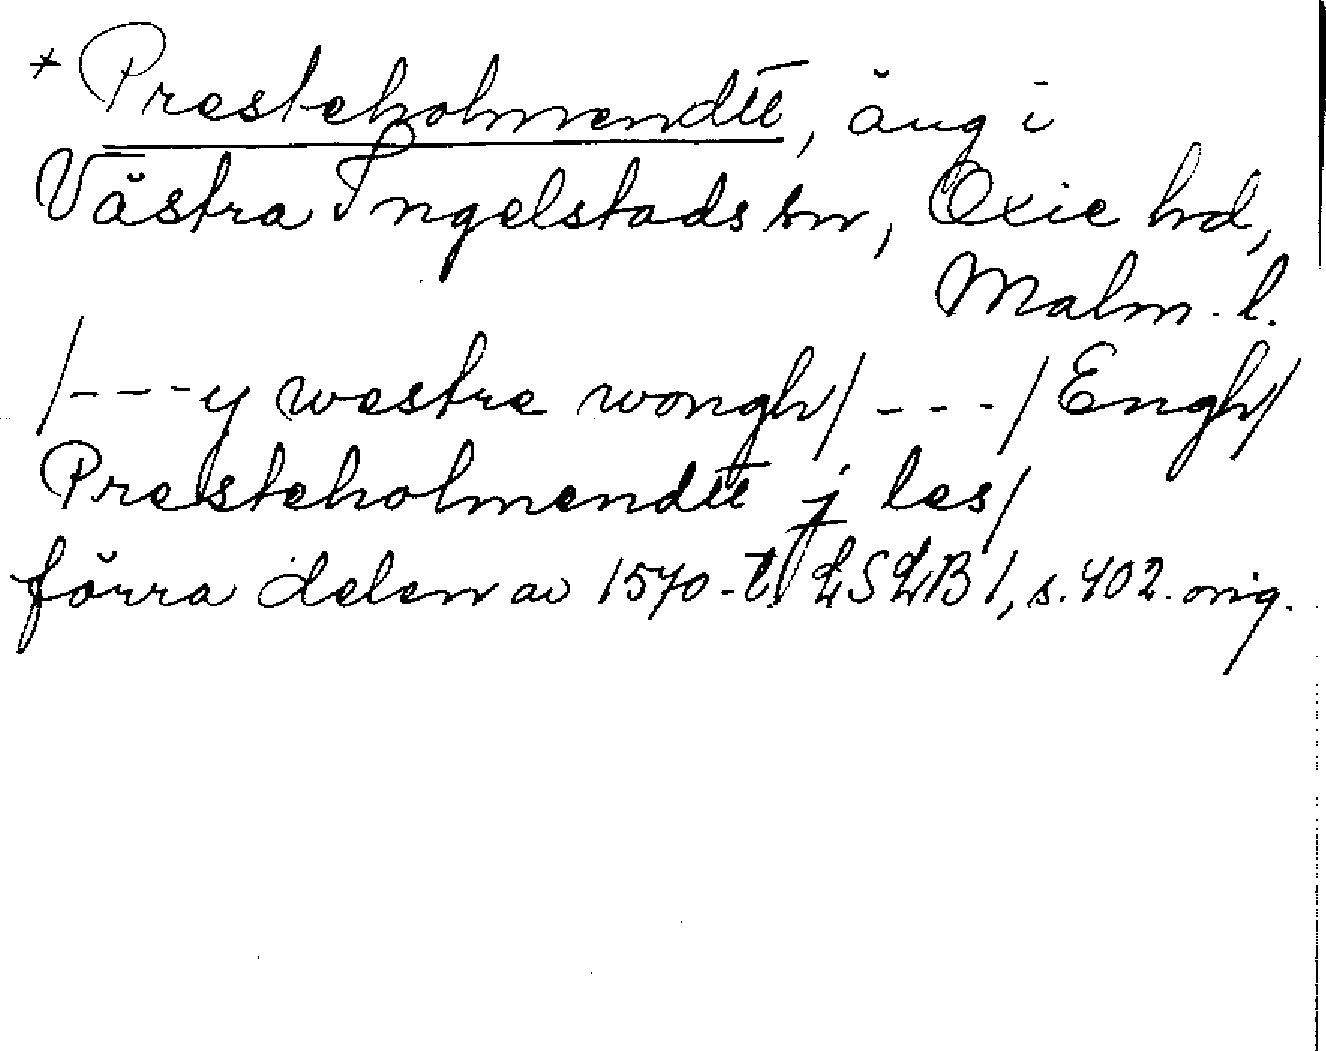 + Presteholmendtt, äng i
Västra Ingelstads sn, Oxie hd,
Malm. l.
/---y westre wongh/---/Engh/
Presteholmendtt j les/
förra delen av 1570-t. LSLB 1, s. 402. orig.